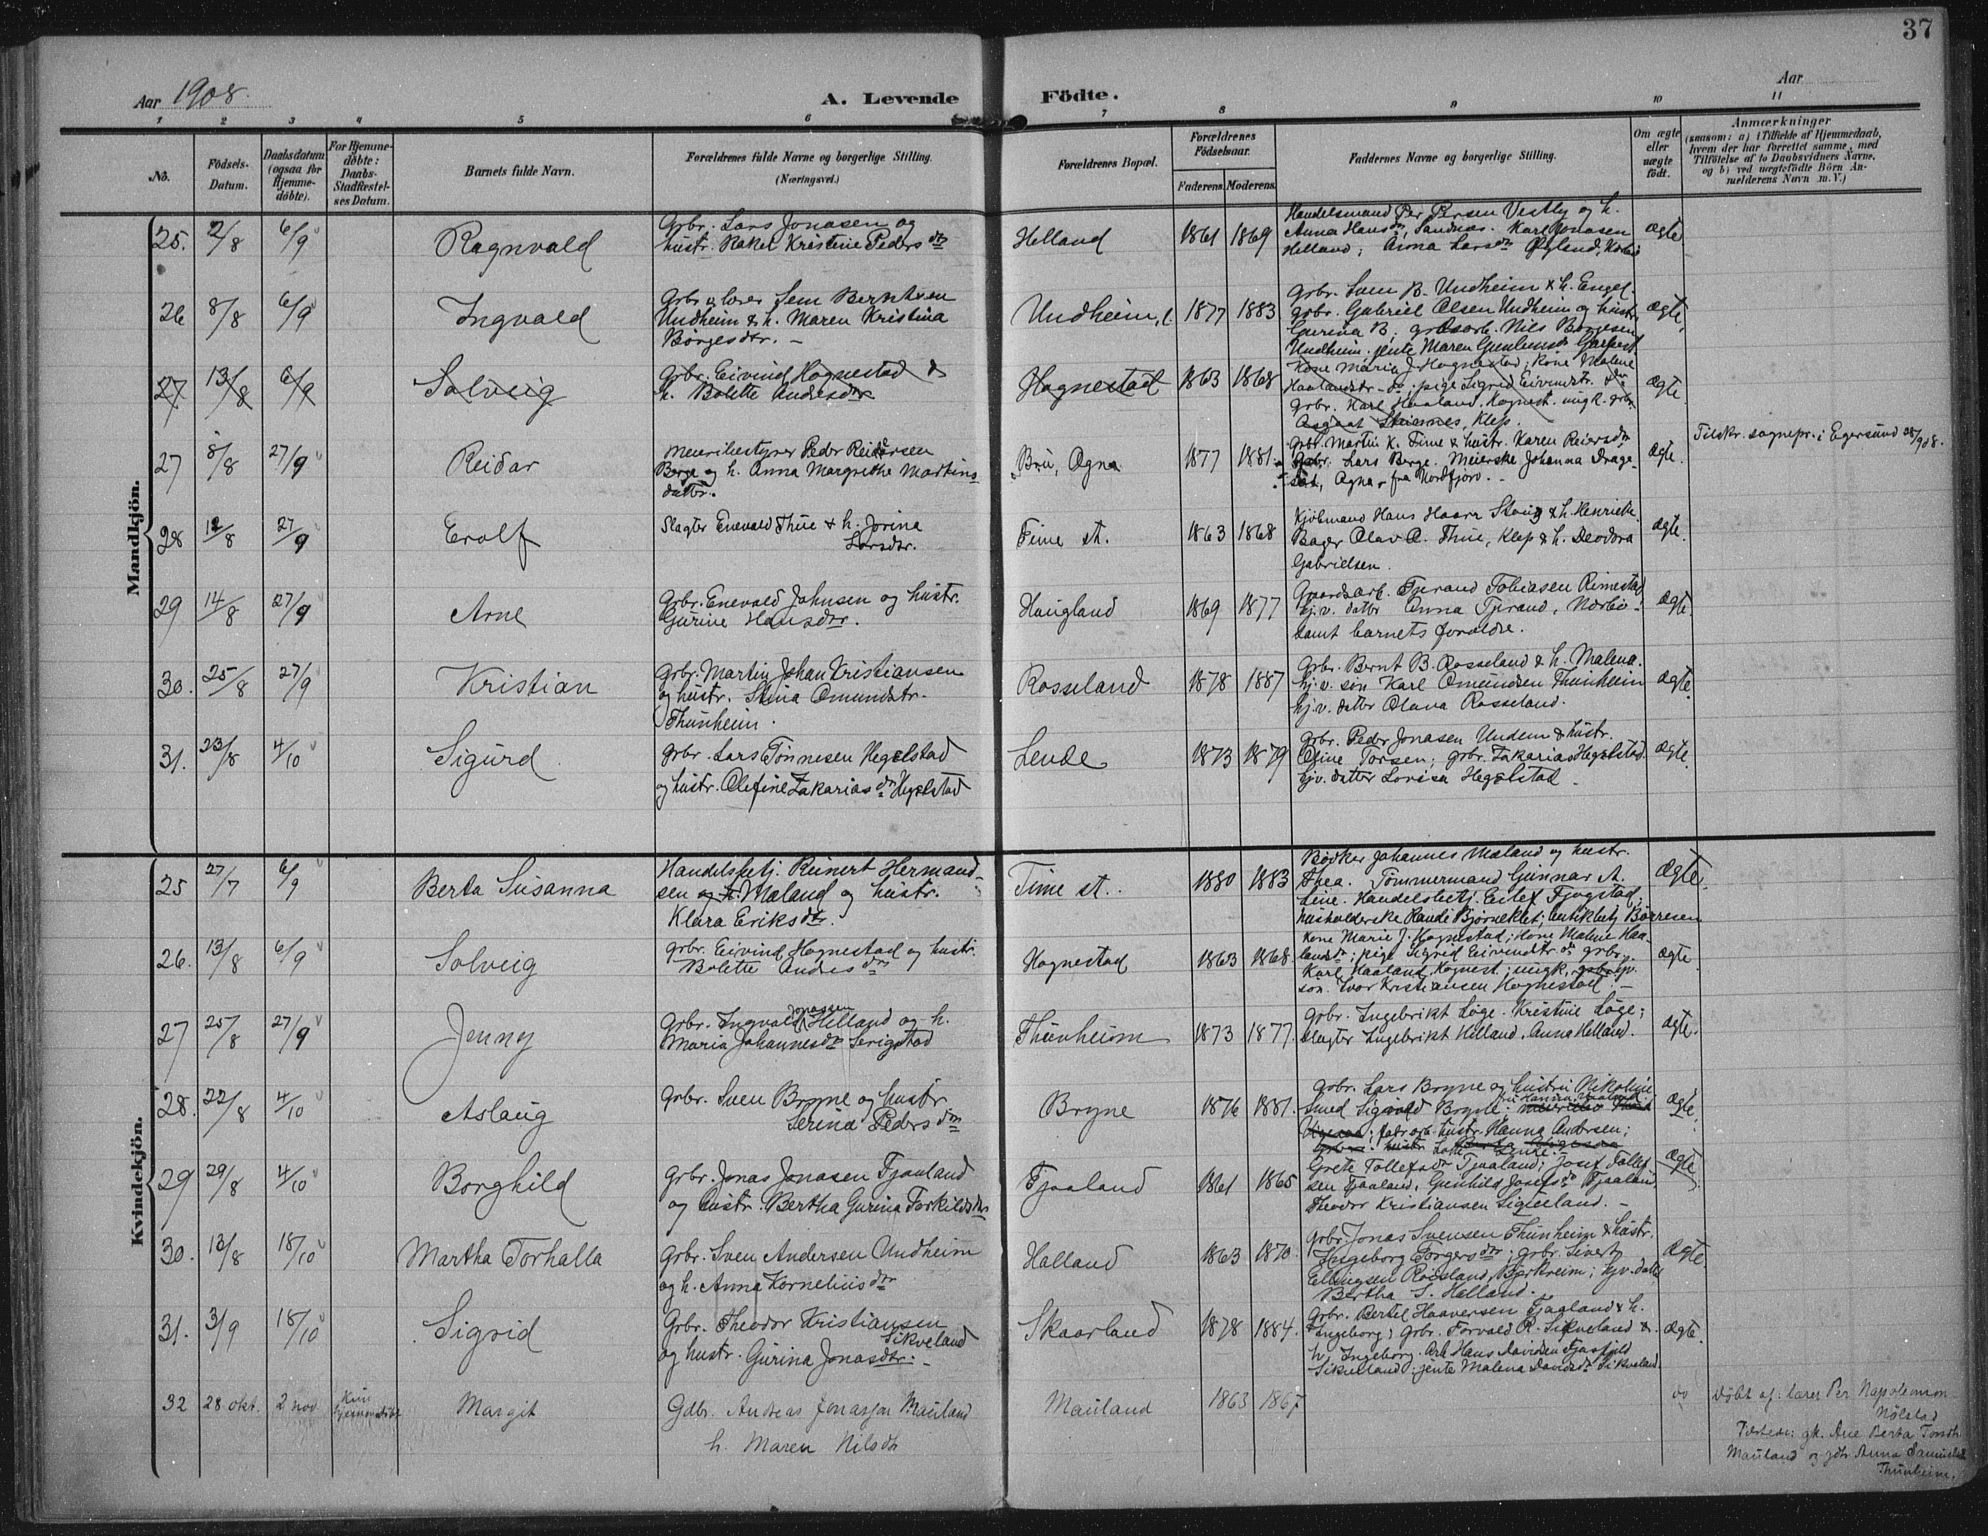 37
Aar 1908.
A. Levende Födte.
Aar
1 2 3 4 5 6 7 8 9 10 11
No.
Födsels-Datum.
Daabsdatum (ogsaa for Hjemmedöbte).
For Hjemmedöbte: Daabs-Stadfæstelses Datum.
Barnets fulde Navn.
Forældrenes fulde Navne og borgerlige Stilling.
(Næringsvei.)
Forældrenes Bopæl.
Forældrenes Födselsaar.
Faderens. Moderens.
Faddernes Navne og borgerlige Stilling.
Om ægte eller uægte födt.
Anmærkninger
(saasom: a) i Tilfælde af Hjemmedaab,
hvem der har forrettet samme, med
Tilföielse af to Daabsvidners Navne,
og b) ved uægtefödte Börn Anmelderens Navn m. V.)
Mandkjön.
25. 2/8 6/9 Ragnvald
Grbr. Lars Jonasen og
hustr. Rakel Kristine Pedersdtr
Helland 1861 1869
Handelsmand Per Persen Vestly og h.
Anna Hansdtr, Sandnæs. Karl Jonasen
Helland; Anna Larsdtr
Ægte
26 8/8 6/9 Ingvald
Grbr og lærer Sem Berntsen
Undheim & h. Maren Kristina
Börgesdtr. -
Undheim, 1877 1883
Grbr. Sven B. Undheim & h. Engel.
grbr. Gabriel Olsen Undheim og hustr.
Gurina B; Nils Börgesen
Undheim. jente Maren
Ægte
27 13/8 6/9 Solveig
Grbr. Eivind Hognestad &
h. Bolette Andresdtr
Hognestad 1863 1868
Kone Maria J. Hognestad; Kone Malene
Haalandsdtr - pige Sigrid Eivindstr.
Grbr. Karl Haaland. Hognest. ungk. grbr.
Klep.
Ægte
27 8/8 27/9 Reidar
Meieribestyrer Peder Reidersen
Berge og h. Anna Margrethe Martinsdatter.
Bru, Ogna 1877 1881.
Grbr. Martin K. Time & hustr. Karen Reiersdtr
Grbr. Lars Berge. Meierske Johanna Dragesæt, Ogna, fra Nordfjord. -
Ægte.
Tilskr. sognepr. i Egersund 28/9 08.
28 12/8 27/9 Erolf
Slagter Enevald Thue & h. Jorina
Larsdtr.
Time st. 1863 1868
Kjöbmand Hans Haarr Skeig & h. Henrikke
Bager Olav R. Thue, Klep & h. Deodora
Gabrielsen.
Ægte.
29 14/8 27/9 Arne
Grbr. Enevald Johnsen og hustr.
Gurine Hansdtr.
Haugland 1869 1877
Gaardsarb. Tjerand Tobiasen Rimestad
hjv. datter Anna Tjerand, Nærbö.
samt barnets forældre.
Ægte
30. 25/8 27/9 Kristian
Grbr. Martin Johan Kristiansen
og hustr. Stina Omundstr.
Thunheim.
Rosseland 1878 1887
Grbr. Bernt B. Rosseland & h. Malena.
hj.v. sön Karl Omundsen Thunheim
hj.v. datter Olava Rosseland.
Ægte.
31. 23/8 4/10 Sigurd
Grbr. Lars Tönnesen Hegelstad
og hustr. Olefine Zakariasdtr Hegelstad
Lende 1873 1879
Grbr. Peder Jonasen Undem & hustr.
Oline Torsen; Grbr. Zakarias Hegelstad.
hjv. datter Lovisa Hegelstad.
Ægte.
Kvindekjön.
25 27/7 6/9 Berta Susanna
Handelsbetj. Reinert Hermandsen og h. Maland og hustr.
Klara Eriksdtr.
Time st. 1880 1883
Bödker Johannes Maland og hustr.
Thea. Tömmermand Gunnar A.
Line. Handelsbetj. Eilef Fjogstad,
husholderske Randi Bjørneklet; Börresen
Ægte.
26. 13/8 6/9 Solveig
Grbr. Eivind Hognestad og hustr.
Bolette Andresdtr
Hognestad 1863 1868.
Kone Marie J. Hognestad; Kone Malene Haalandsdtr; pige Sigrid Eivindstr. do grbr.
Karl Haaland, Hognest; ungk. hjv.
sön. Ivar Kristiansen Hognestad. -
Ægte
27 25/8 27/9 Jenny
Grbr. Ingvald Jonassen Helland og h.
Maria Johannesdtr Serigstad
Thunheim 1873 1877.
Grbr. Ingebrikt Løge. Kristine Løge;
Slagter Ingebrikt Helland. Anna Helland.
Ægte.
28. 22/8 4/10 Aslaug
Grbr. Sven Bryne og hustr
Serina Pedersdtr
Bryne 1876 1881.
Grbr. Lars Bryne og hustru Nikoline
Smed Sigvald Bryne;
fabr.arb. hustr. Hanna Andersen;
Ægte
29 29/8 4/10 Borghild
Grbr. Jonas Jonasen Tjaaland
og hustr. Bertha Gurina Torkildsdtr
Tjaaland 1861 1865
Grete Tollefsdtr Tjaaland; Josef Tollefsen Tjaaland, Gunhild Josefsdtr Tjaaland,
Theodor Kristiansen Sigveland. -
Ægte
30. 13/8 18/10 Martha Torhalla
Grbr. Sven Andersen Undheim
og h. Anna Korneliusdtr
Halland 1863 1870.
Grbr. Jonas Svensen Thunheim & hustr.
Ingeborg Torgersdtr; grbr. Sivert
Ellingsen Røisland, Bjerkreim; hjv. datter
Bertha S. Helland.
Ægte.
31. 3/9 18/10 Sigrid
Grbr. Theodor Kristiansen
Sikveland
og hustr. Gurina Jonasdtr. -
Skaarland 1878 1884.
Grbr. Bertel Haaversen Tjaaland & h.
Ingeborg; Grbr. Torvald R. Sikveland &
h. Ingeborg. Hans Davidsen
Sikvelland; jente Malena Davidsdtr Sikveland.
Ægte.
32 28 okt. 2 nov Kun hjemmedöbt Margit
Gdbr. Andreas Jonassen Mauland
h. Maren Nilsdtr
Mauland 1863 1867
do
Döbt af: lærer Per Napoleonson
Nölstad
Tilstede: gk. Ane Berta
Mauland og gdbr Anna
Thunheim.